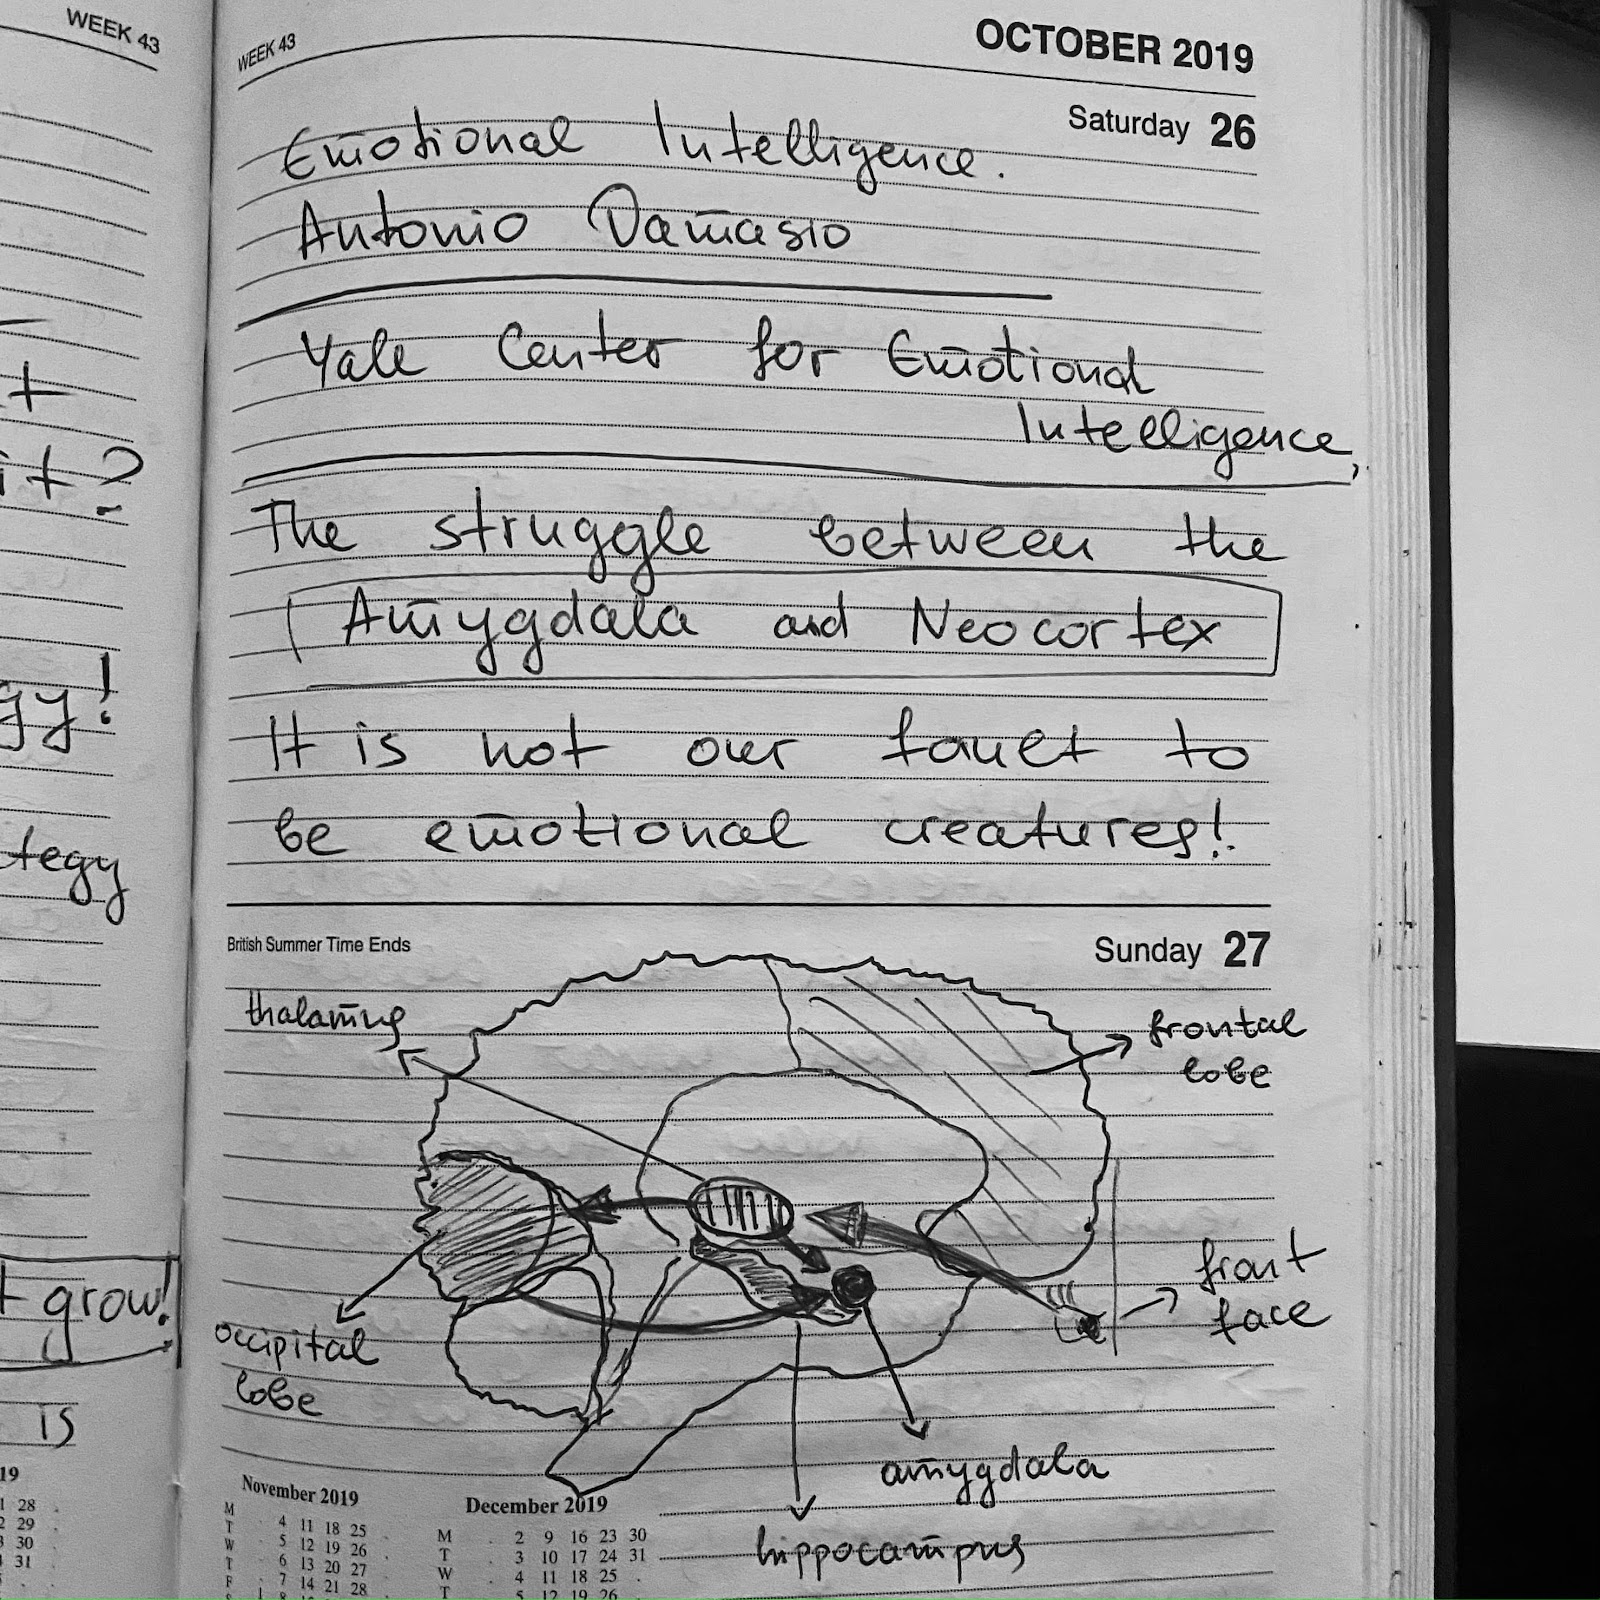 WEEK 43
t
it?
gy!
tegy
t grow!
is
19
28
29
30
31
WEEK 43
OCTOBER 2019
Saturday 26
Emotional Intelligence.
Antonio Damasio
Yale Center for Emotional
Intelligence,
The struggle between the
Amygdala and Neocortex
It is not our fault to
be emotional creatures!
British Summer Time Ends
Sunday 27
thalamus
frontal
lobe
front
face
occipital
lobe
amygdala
hippocampus
November 2019
M 4 11 18 25
T 5 12 19 26
W 6 13 20 27
T 7 14 21 28
F 1 8
December 2019
M 2 9 16 23 30
T 3 10 17 24 31
W 4 11 18 25
T 5 12 19 26